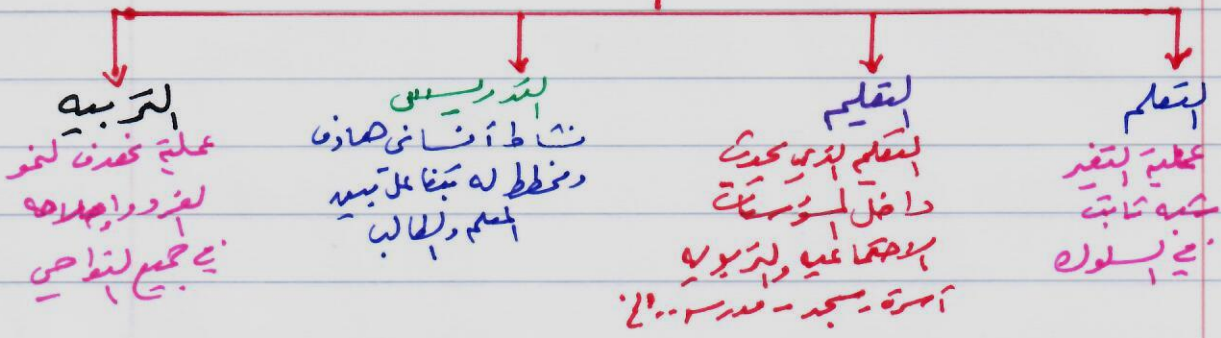 التعلم
عملية التغير
شبه ثابت
في السلوك
التعليم
التعلم الذي يحدث
داخل المؤسسات
الاجتماعية والتربوية
أسرة - مسجد - مدرسة .. الخ
التدريس
نشاط أنساني هادف
ومخطط له يتفاعل بين
المعلم والطالب
التربية
عملية تهدف لنمو
الفرد وإصلاحه
في جميع النواحي